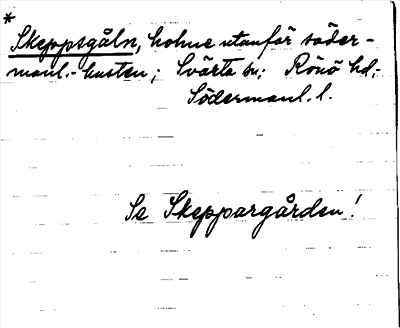 *
Skeppsgåln, holme utanför söder-
manl.-kusten; Svärta sn; Rönö hd;
Södermanl. l.
Se Skeppargården!